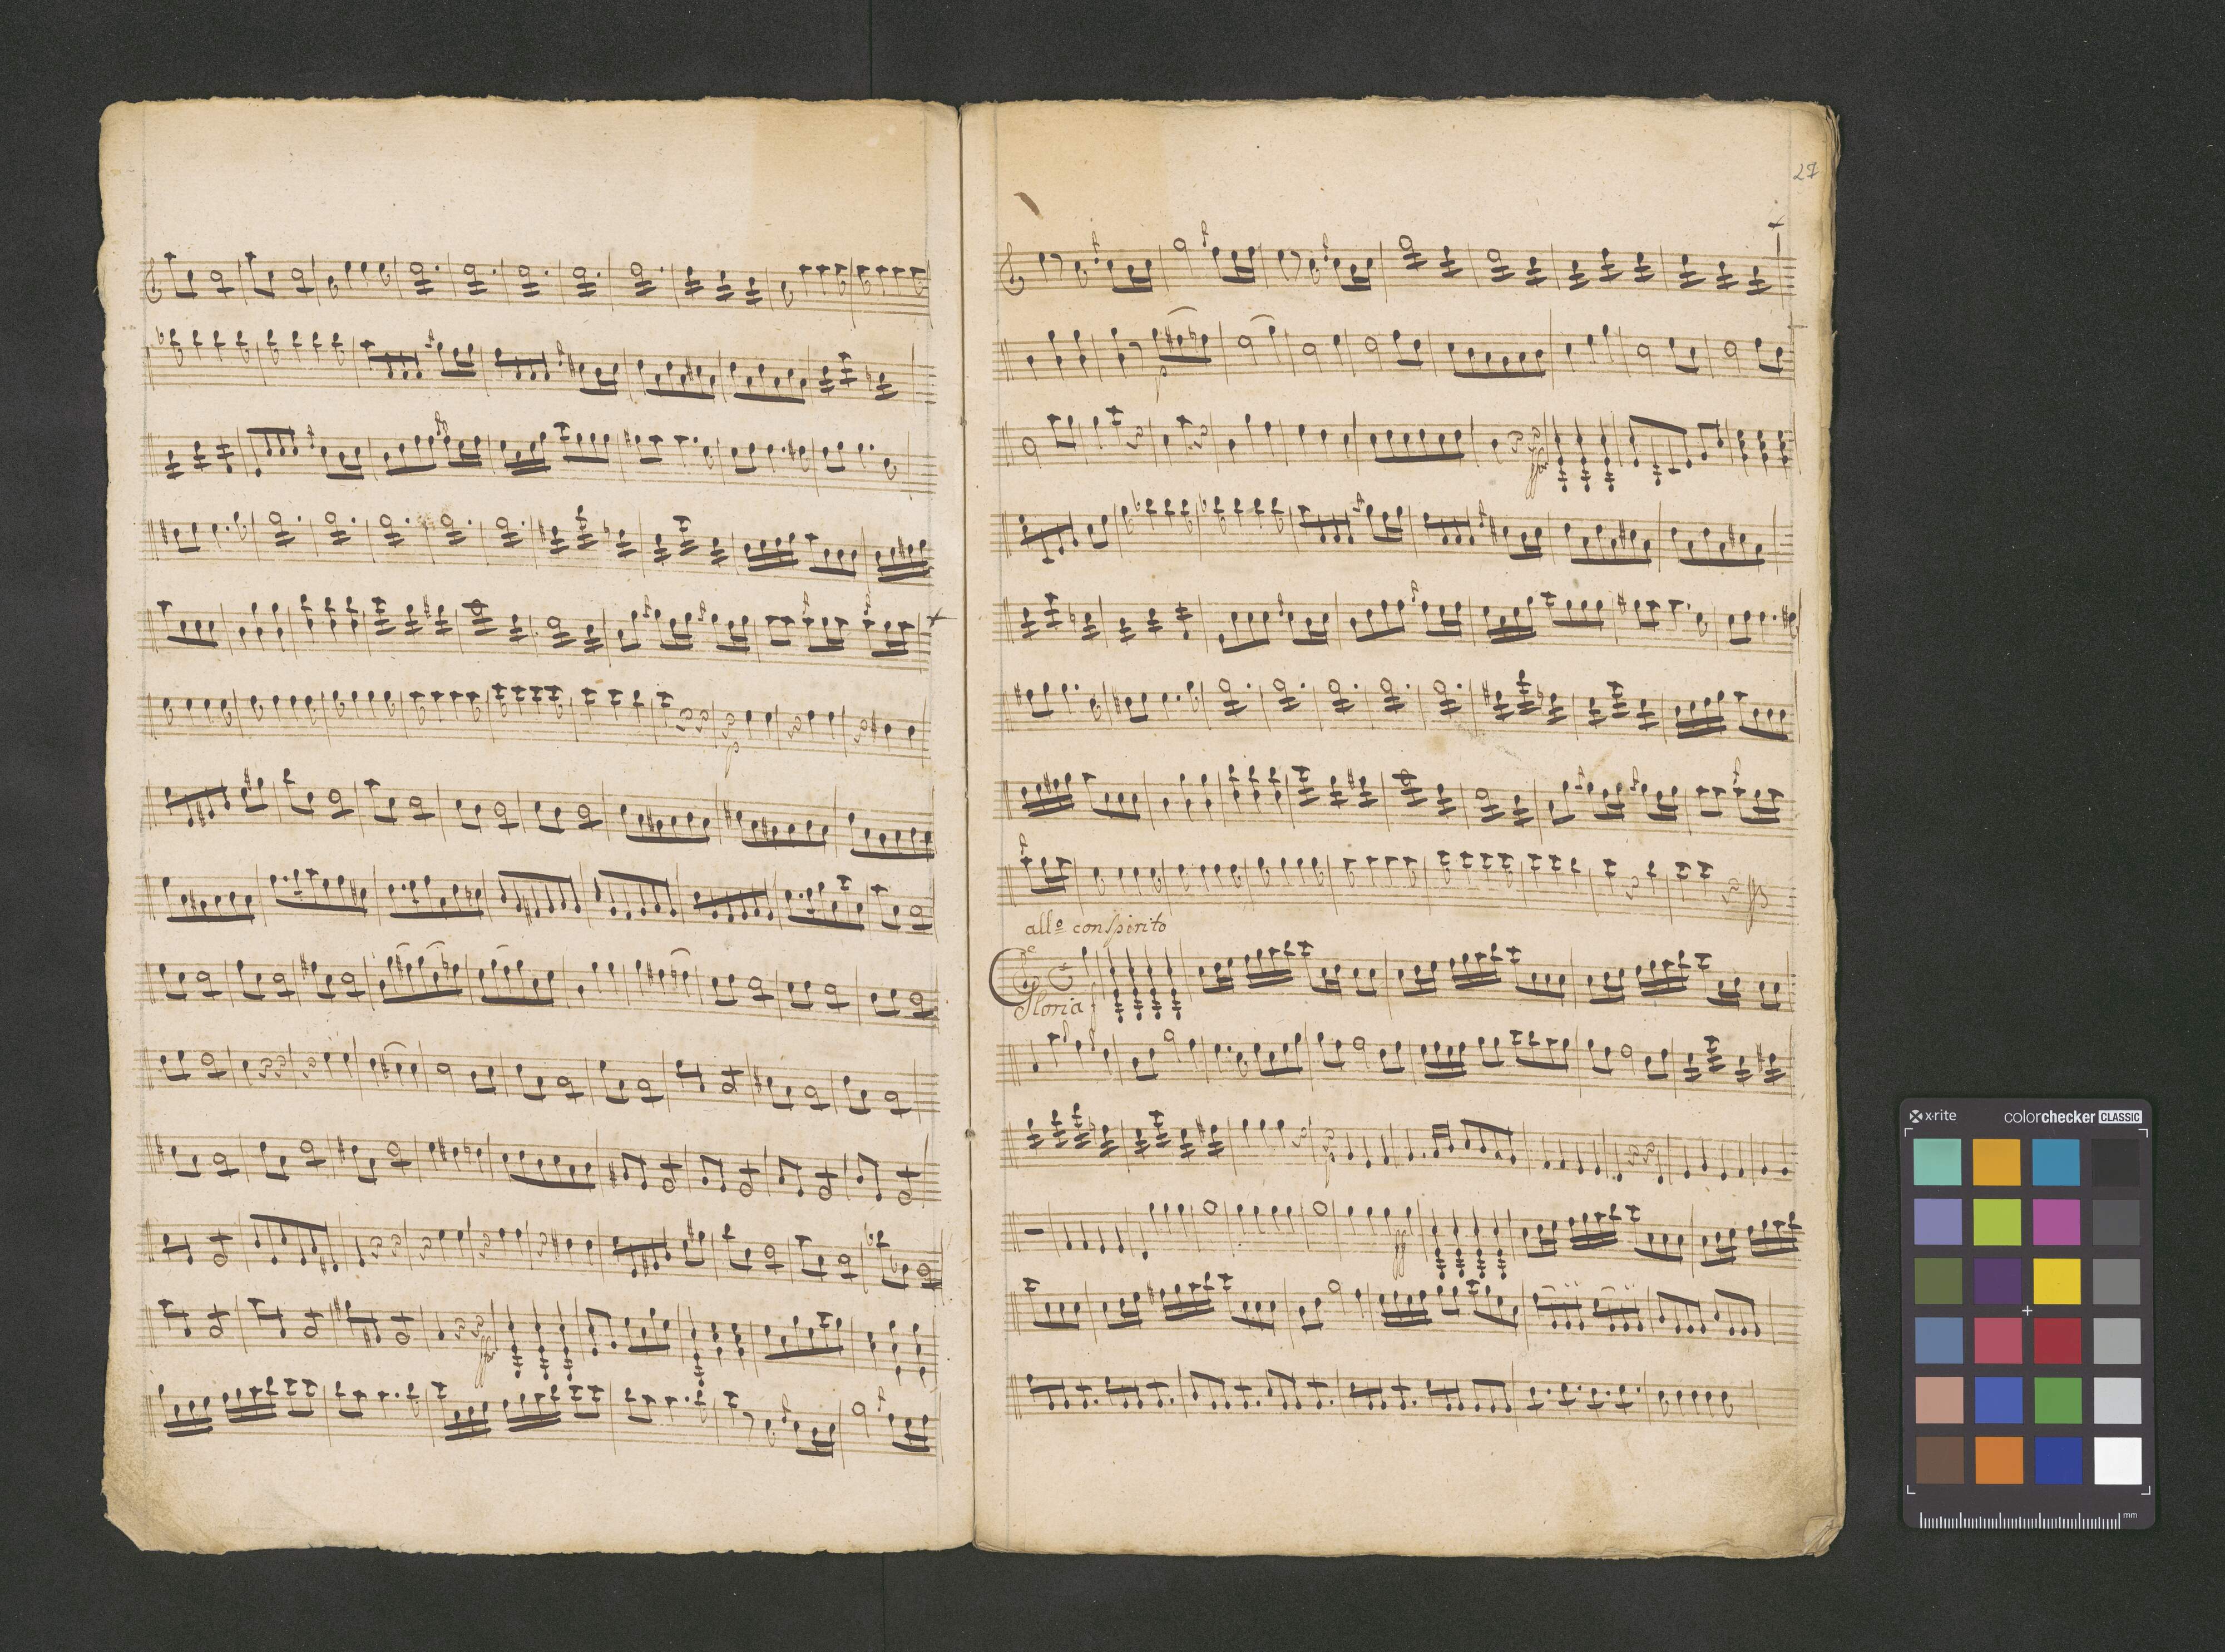 27
p
p
ffor
all.o con Spirito
Gloria f
ff
x-rite
colorchecker CLASSIC
mm